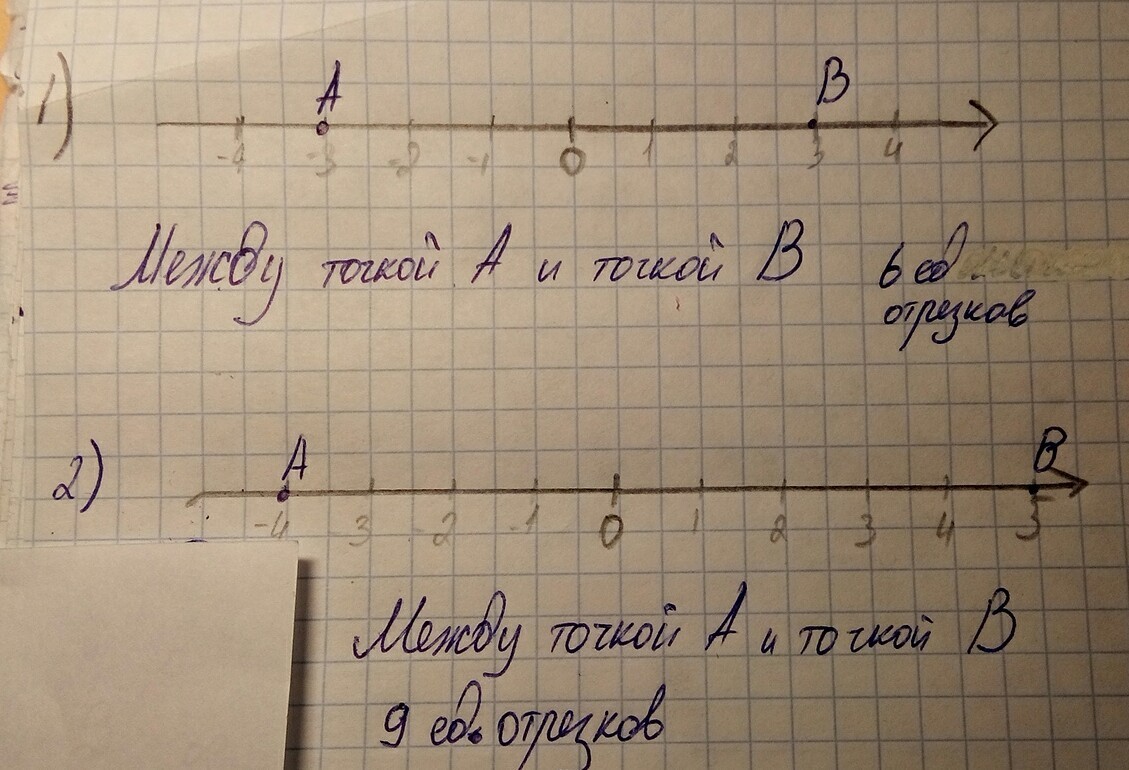 1)
A B
-4 -3 -2 -1 0 1 2 3 4
Между точкой A и точкой B 6 ед
отрезков
2)
A B
-4 3 -2 -1 0 1 2 3 4 5
Между точкой A и точкой B
9 ед. отрезков